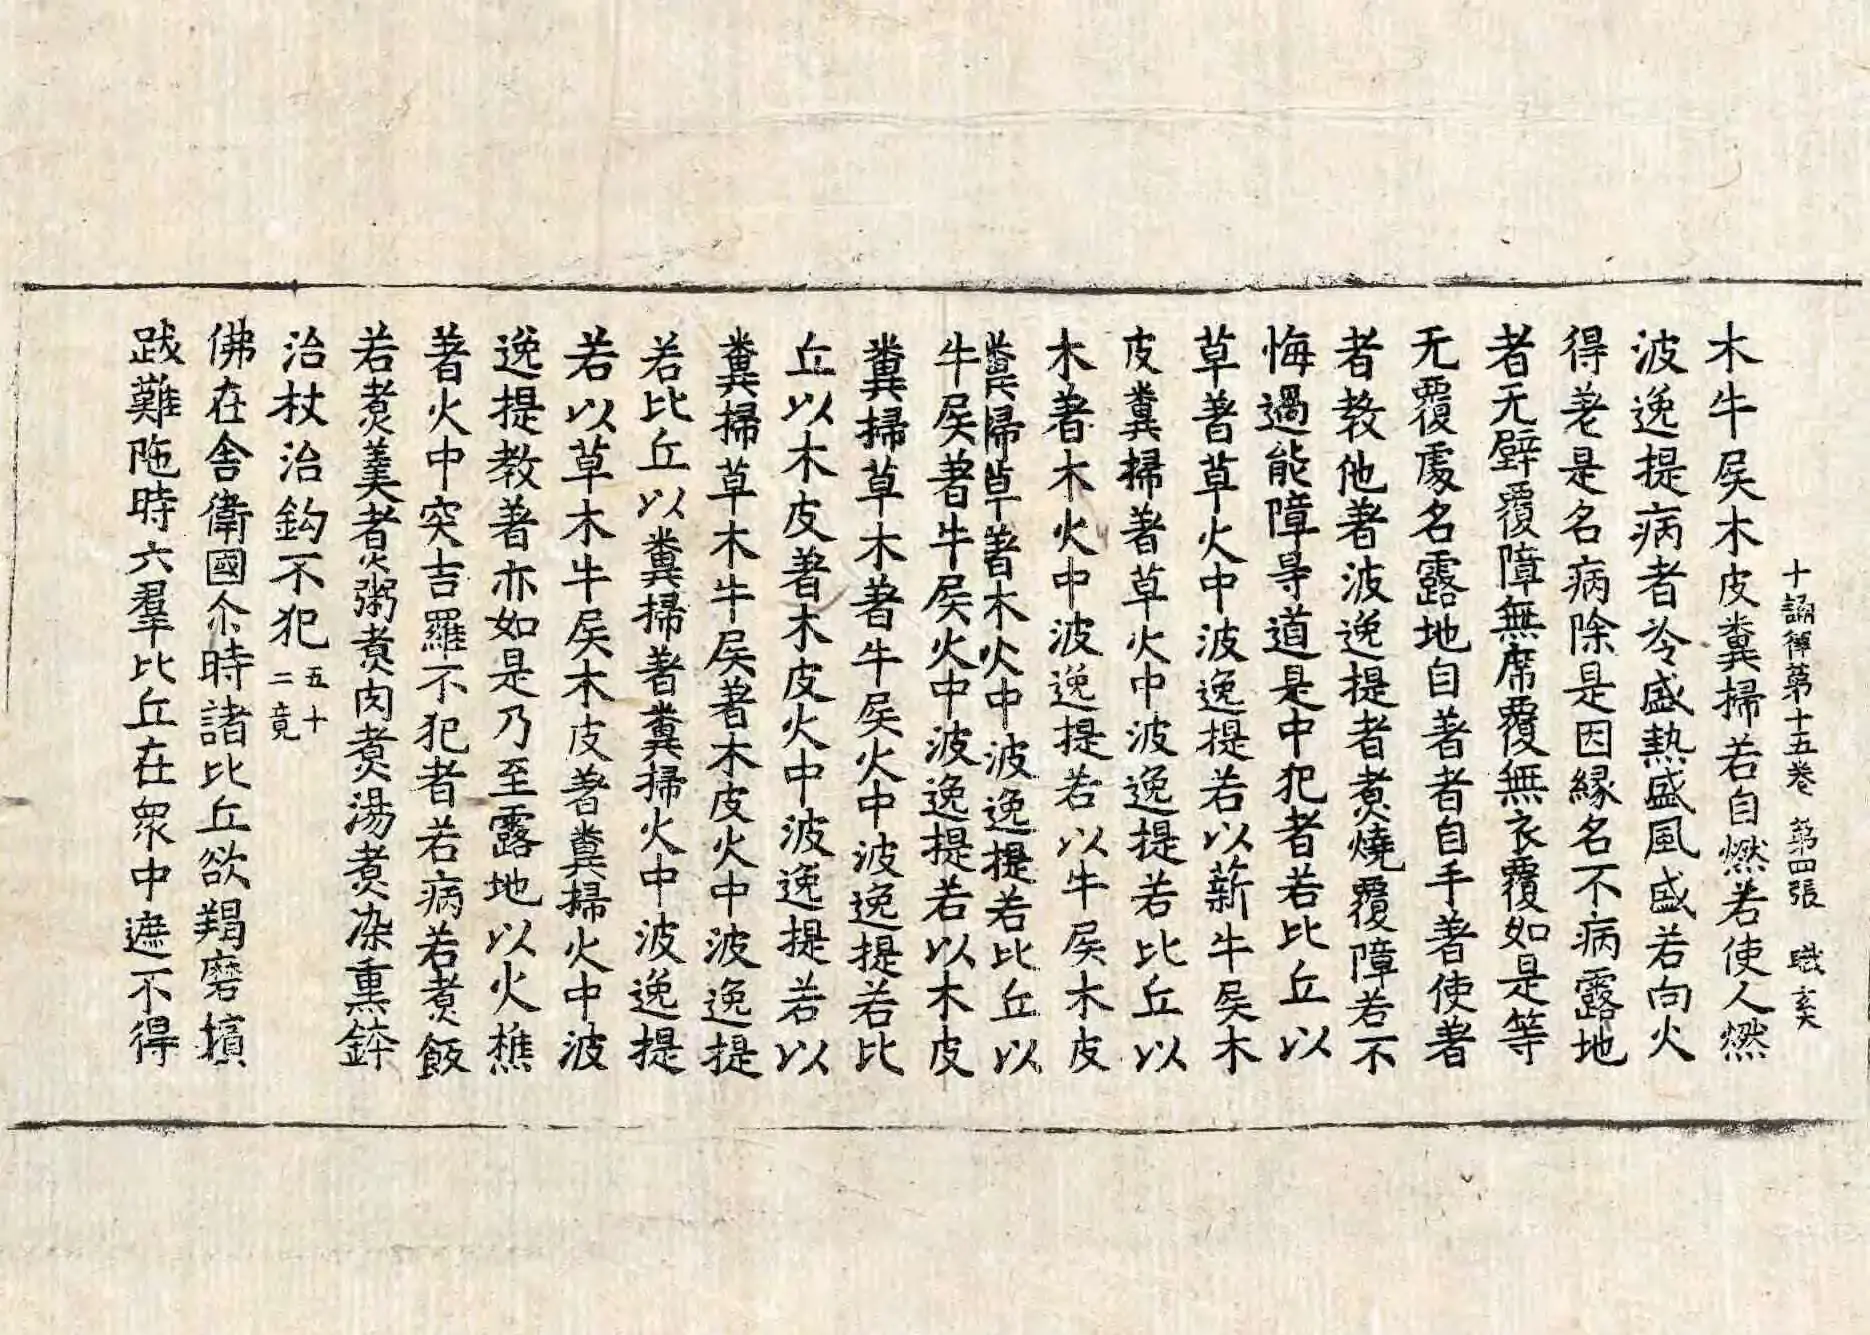 十誦律第十五卷 第四張 職 亥
木牛屎木皮糞掃若自燃若使人燃
波逸提病者冷盛熱盛風盛若向火
得差是名病除是因縁名不病露地
者无壁覆障無席覆無衣覆如是等
无覆處名露地自著者自手著使著
者教他著波逸提者煑燒覆障若不
悔過能障㝵道是中犯者若比丘以
草著草火中波逸提若以薪牛屎木
皮糞掃著草火中波逸提若比丘以
木著木火中波逸提若以牛屎木皮
糞掃草著木火中波逸提若比丘以
牛屎著牛屎火中波逸提若以木皮
糞掃草木著牛屎火中波逸提若比
丘以木皮著木皮火中波逸提若以
糞掃草木牛屎著木皮火中波逸提
若比丘以糞掃著糞掃火中波逸提
若以草木牛屎木皮著糞掃火中波
逸提教著亦如是乃至露地以火樵
著火中突吉羅不犯者若病若煑飯
若煑羹煑粥煑肉煑湯煑染熏鉢
治杖治鈎不犯 五十二竟
佛在舍衛國尒時諸比丘欲羯磨擯
跋難陁時六羣比丘在衆中遮不得